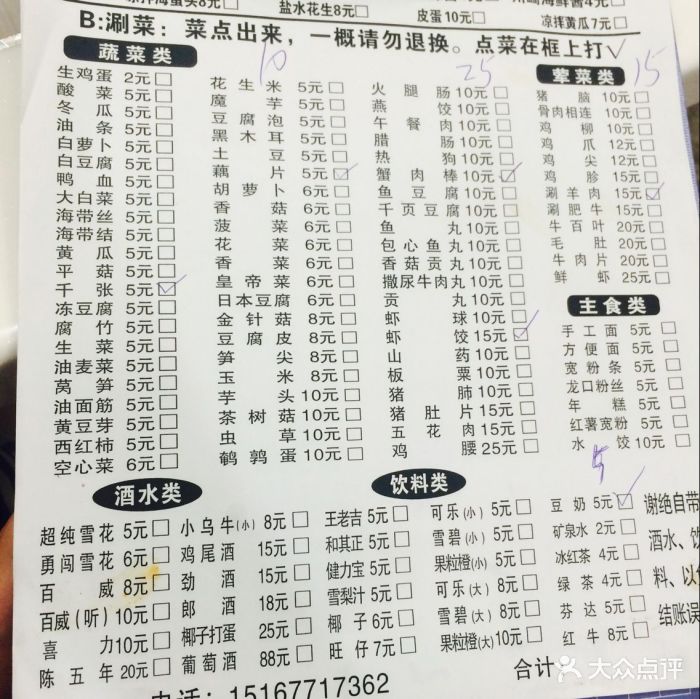 盐水花生8元□ 皮蛋10元□ 凉拌黄瓜7元□
B:涮菜：菜点出来，一概请勿退换。点菜在框上打√
蔬菜类 10 25 荤菜类 15
生鸡蛋 2元□
酸菜 5元□
冬瓜 5元□
油条 5元□
白萝卜 5元□
白豆腐 5元□
鸭血 5元□
大白菜 5元□
海带丝 5元□
海带结 5元□
黄瓜 5元□
平菇 5元□
千张 5元□✓
冻豆腐 5元□
腐竹 5元□
生菜 5元□
油麦菜 5元□
莴笋 5元□
油面筋 5元□
黄豆芽 5元□
西红柿 5元□
空心菜 6元□
花生米 5元□
魔芋 5元□
豆腐泡 5元□
黑木耳 5元□
土豆 5元□
藕片 5元□✓
胡萝卜 6元□
香菇 6元□
菠菜 6元□
花菜 6元□
香菜 6元□
皇帝菜 6元□
日本豆腐 6元□
金针菇 8元□
豆腐皮 8元□
笋尖 8元□
玉米 8元□
芋头 10元□
茶树菇 10元□
虫草 10元□
鹌鹑蛋 10元□
火腿肠 10元□
燕饺 10元□
午餐肉 10元□
腊肠 10元□
热狗 10元□
蟹肉棒 10元□✓
鱼豆腐 10元□
千页豆腐 10元□
鱼丸 10元□
包心鱼丸 10元□
香菇贡丸 10元□
撒尿牛肉丸 10元□
贡丸 10元□
虾球 10元□
虾饺 15元□✓
山药 10元□
板粟 10元□
猪肺 10元□
猪肚片 15元□
五花肉 15元□
鸡腰 25元□
猪脑 10元□
骨肉相连 10元□
鸡柳 10元□
鸡爪 12元□
鸡尖 12元□
鸡胗 15元□
涮羊肉 15元□✓
涮肥牛 15元□
牛百叶 20元□
毛肚 20元□
牛肉片 20元□
鲜虾 25元□
主食类
手工面 5元□
方便面 5元□
宽粉条 5元□
龙口粉丝 5元□
年糕 5元□
红薯宽粉 5元□
水饺 10元□
酒水类 饮料类 5
超纯雪花 5元□
勇闯雪花 6元□
百威 8元□
百威(听) 10元□
喜力 10元□
陈五年 20元□
小乌牛(小) 8元□
鸡尾酒 15元□
劲酒 15元□
郎酒 18元□
椰子打蛋 25元□
葡萄酒 88元□
王老吉 5元□
和其正 5元□
健力宝 5元□
雪梨汁 5元□
椰子 6元□
旺仔 7元□
可乐(小) 5元□
雪碧(小) 5元□
果粒橙(小) 5元□
可乐(大) 8元□
雪碧(大) 8元□
果粒橙(大) 10元□
豆奶 5元□✓
矿泉水 2元□
冰红茶 4元□
绿茶 4元□
芬达 5元□
红牛 8元□
谢绝自带
酒水、饮
料、以
结账误
合计
电话：15167717362
大众点评